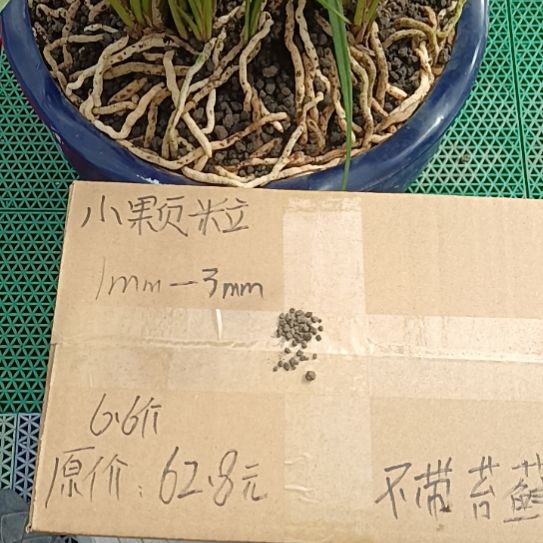 小颗粒
1mm-3mm
6.6斤
原价:62.8元
不带苔藓